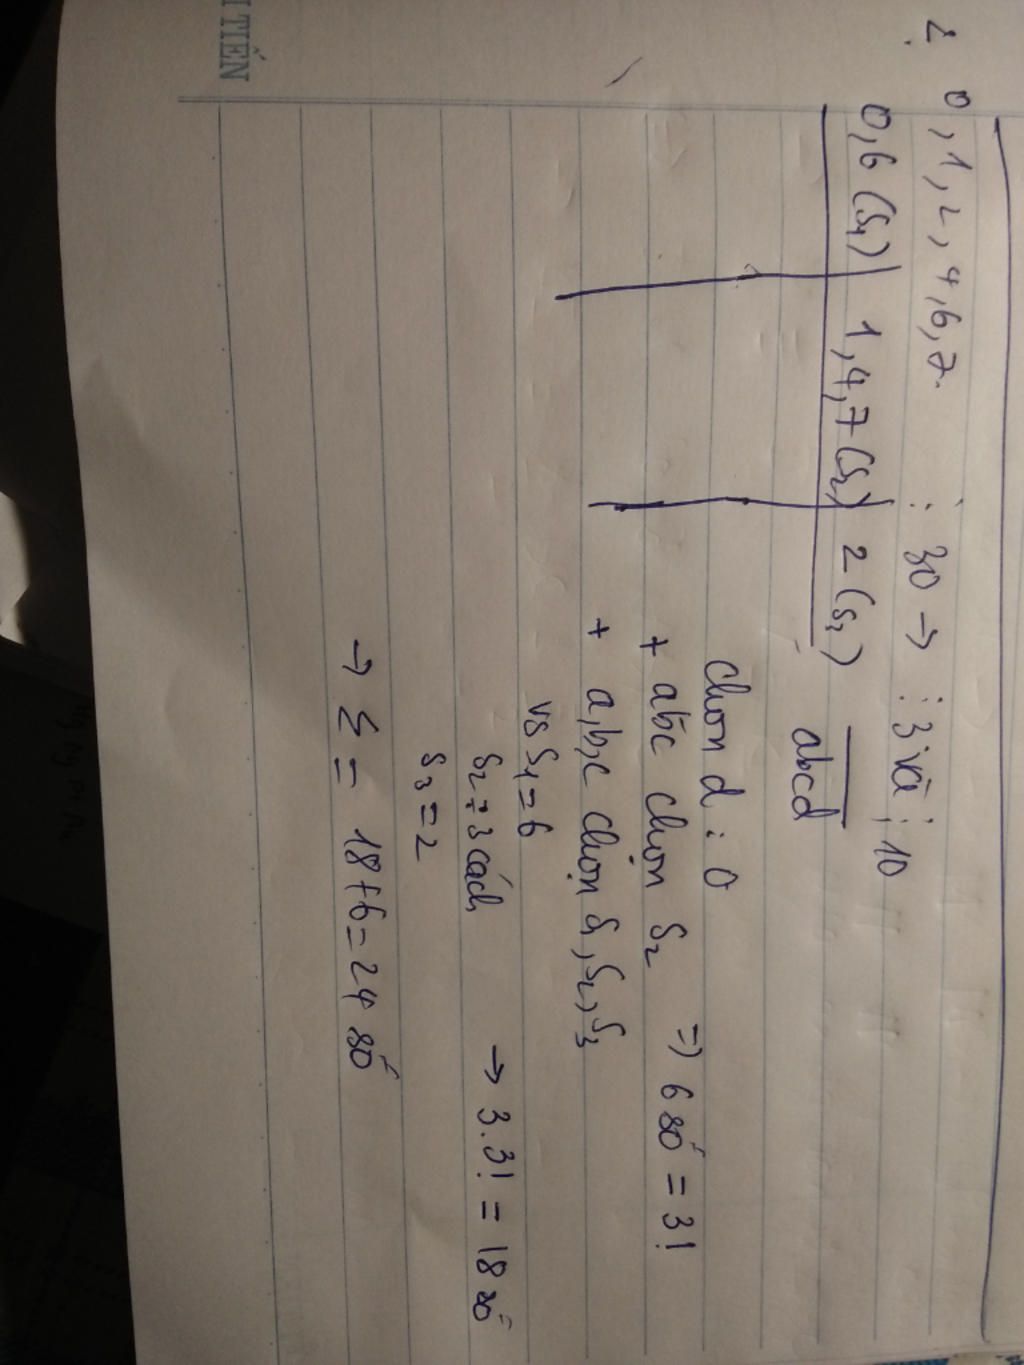 I TIẾN
0, 1, 2, 4, 6, 7. ⋮ 30 → ⋮ 3 và ⋮ 10
0, 6 (S1) 1, 4, 7 (S2) 2 (S3)
abcd
chọn d : 0
+ abc chọn S2 => 6 số = 3!
+ a, b, c chọn S1, S2, S3
vs S1 = 6
S2 = 3 cách → 3.3! = 18 số
S3 = 2
→ Σ = 18 + 6 = 24 số